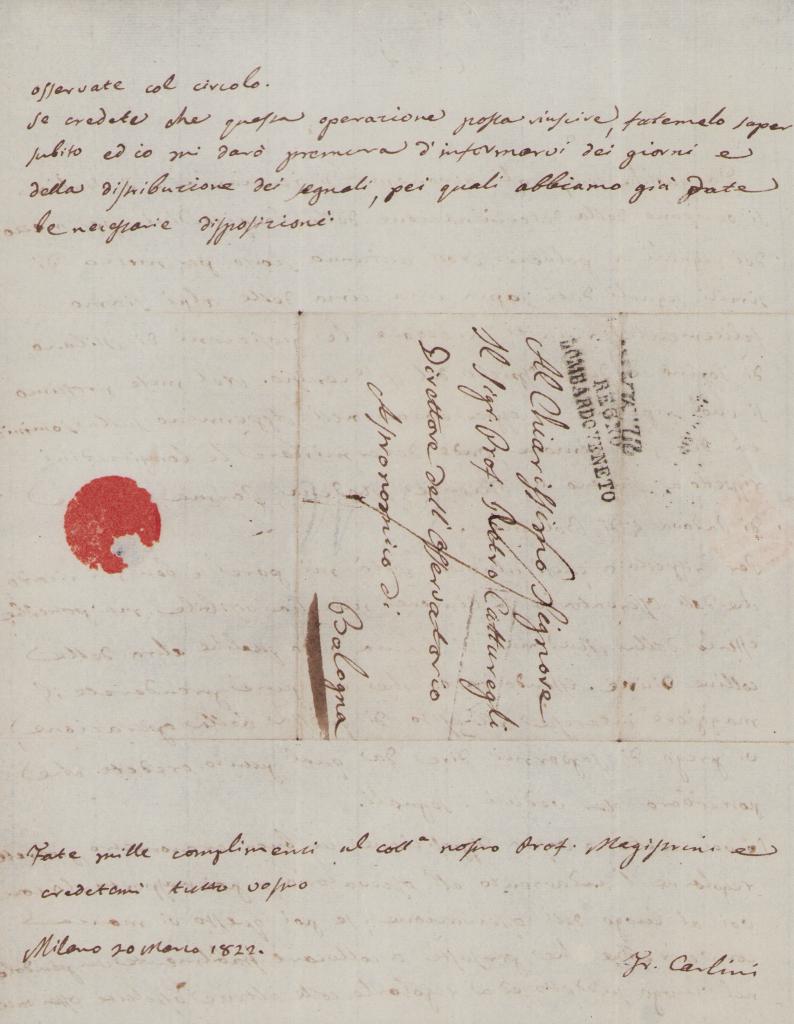 osservate col circolo.
Se credete che questa operazione possa riuscire, fatemelo saper
subito ed io mi darò premura d'informarvi dei giorni e
della distribuzione dei segnali, pei quali abbiamo già date
le necessarie disposizioni.
REGNO
LOMBARDOVENETO
Al Chiarissimo Signore
Il Sigr. Prof. Pietro Catturegli
Direttore dell'Osservatorio
Astronomico di
Bologna
Fate mille complimenti al coll.ª nostro Prof. Magistrini e
credetemi tutto vostro
Milano 20 Marzo 1822.
Fr. Carlini